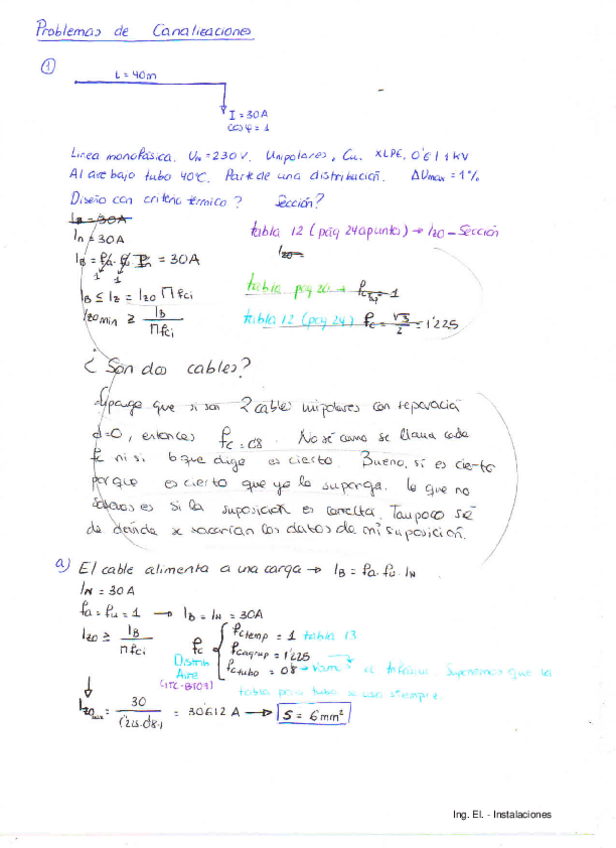 Problemas de Canalizaciones
①
L = 40m
I = 30A
cosφ = 1
Linea monofásica. Un = 230V. Unipolares, Cu. XLPE, 0'6/1 kV
Al aire bajo tubo 40ºC. Parte de una distribución. ΔUmax = 1%
Diseño con criterio térmico? Sección?
IB = 30A
In = 30A
IB = fa · fu · In = 30A
1 1
IB ≤ Iz = Iz0 Π fci
Iz0 min ≥ IB / Πfci
tabla 12 (pág 24 apuntes) → Iz0 - Sección
Iz0 =
tabla pág 26 → = 1
tabla 12 (pag 24) fc = √3/2 = 1'225
¿ Son dos cables?
Supongo que si son 2 cables unipolares con separación
d=0, entonces fc = 0'8. No sé como se llama cada
fc ni si lo que digo es cierto. Bueno, sí es cierto
porque es cierto que yo lo suponga. Lo que no
sabemos es si la suposición es correcta. Tampoco sé
de dónde se sacarían los datos de mi suposición.
a) El cable alimenta a una carga → IB = fa · fu · IN
IN = 30A
fa = fu = 1 → IB = IN = 30A
Iz0 ≥ IB / Πfci
fc
fctemp = 1 tabla 13
fcagrup = 1'225
fctubo = 0'8 → Suponemos que la
tabla para tubo se usa siempre.
Distrib
Aire
(ITC-BT07)
Iz0 = 30 / (1'225·0'8·1) = 30'612 A → S = 6 mm²
Ing. El. - Instalaciones